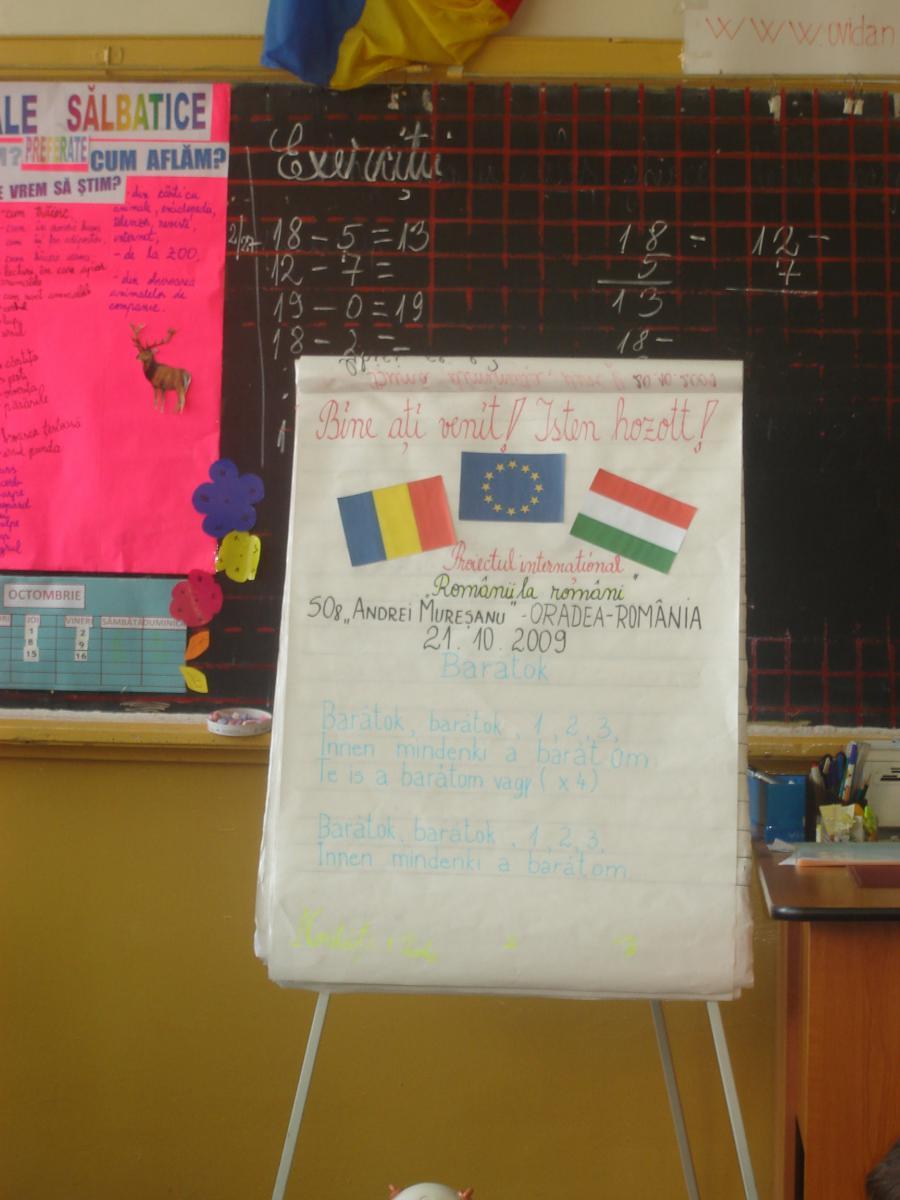 www.ovidan
ALE SĂLBATICE
M? PREFERATE CUM AFLĂM?
E VREM SĂ ȘTIM?
- din cărți cu
animale, enciclopedia,
reviste,
internet,
- de la ZOO,
- din observarea
animalelor de
companie.
păsările
broasca țestoasă
ursul panda
OCTOMBRIE
JOI VINERI SÂMBĂTĂ DUMINICĂ
1 2
8 9
15 16
Exerciții
18 - 5 = 13
12 - 7 =
19 - 0 = 19
18 - 2 =
18 -
5
13
12 -
7
18 -
20.10.2009
Bine ați venit! Isten hozott!
Proiectul internațional
"Românii la români"
S08 „ANDREI MUREȘANU" - ORADEA-ROMÂNIA
21.10.2009
Barátok
Barátok, barátok, 1, 2, 3,
Innen mindenki a barátom
Te is a barátom vagy ( x 4)
Barátok, barátok, 1, 2, 3,
Innen mindenki a barátom